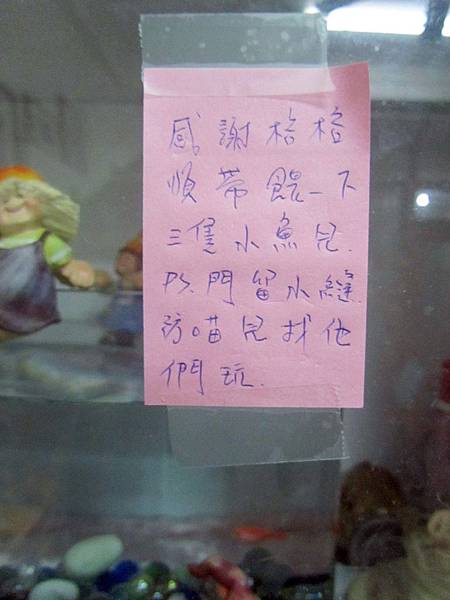 感謝格格
順帶餵一下
三隻小魚兒.
PS.門留小縫.
防喵兒找他
們玩.